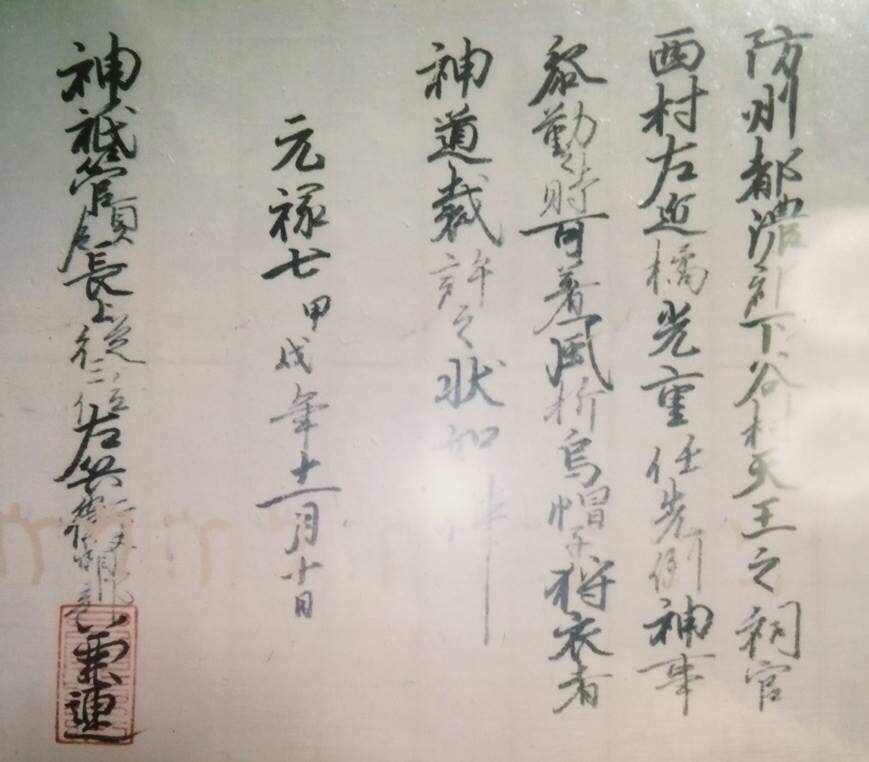 防州都濃郡下谷村天王之祠官
西村左近橘光重任先例神事
参勤時可著風折烏帽子狩衣者
神道裁許之状如件
元禄七甲戌年十一月十日
神祇管領長上従二位左兵衛督卜部兼連